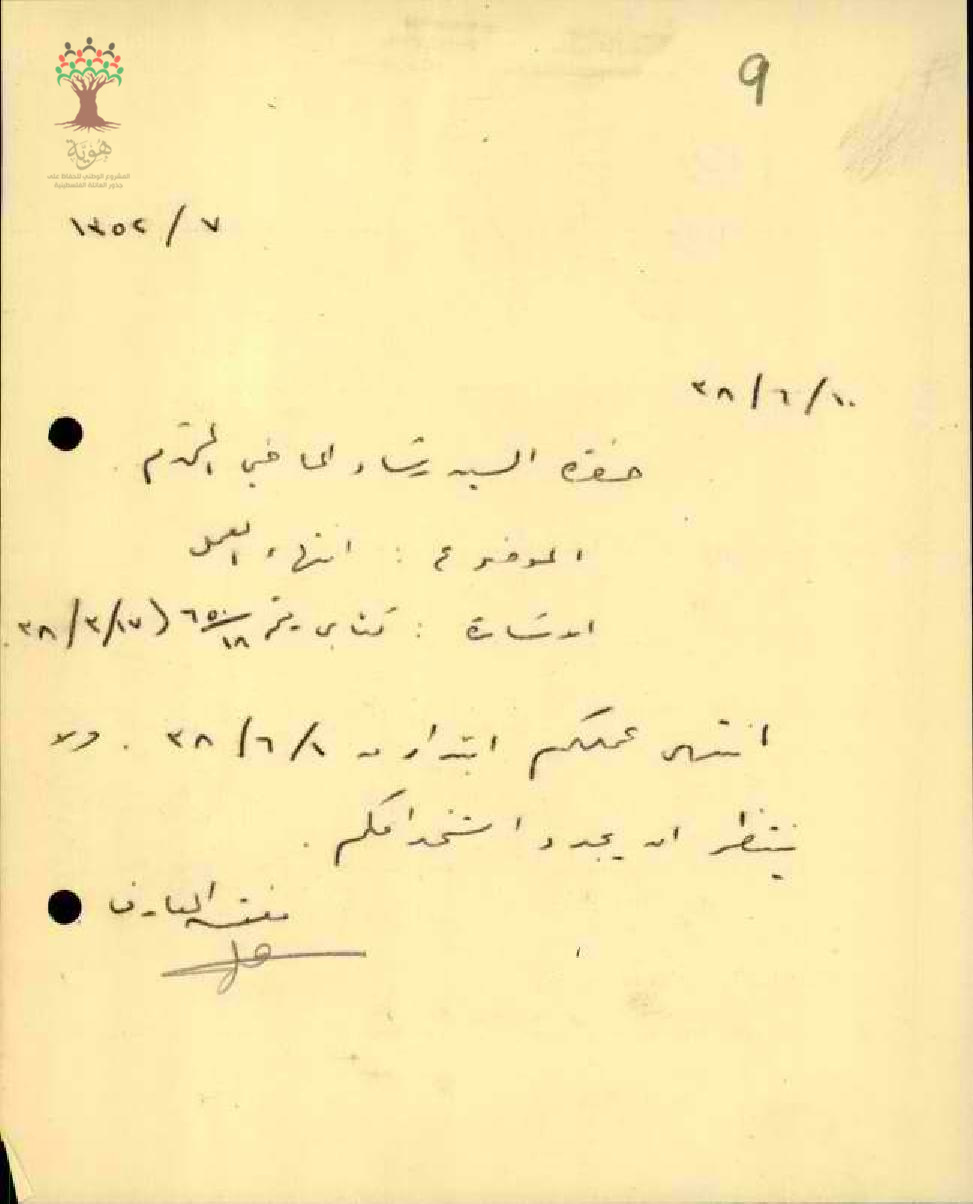 هُوِيَّة
المشروع الوطني للحفاظ على
جذور العائلة الفلسطينية
9
٧/١٣٥٢
٣٨/٦/١٠
حضرة السيد رشاد الماضي المحترم
الموضوع : انتهاء العمل
الاشارة : كتابي رقم ٣٨/٣/١٧
انتهى عملكم ابتداء من ٣٨/٦/١ . ولا
ينتظر ان يجدد استخدامكم .
مفتش المعارف